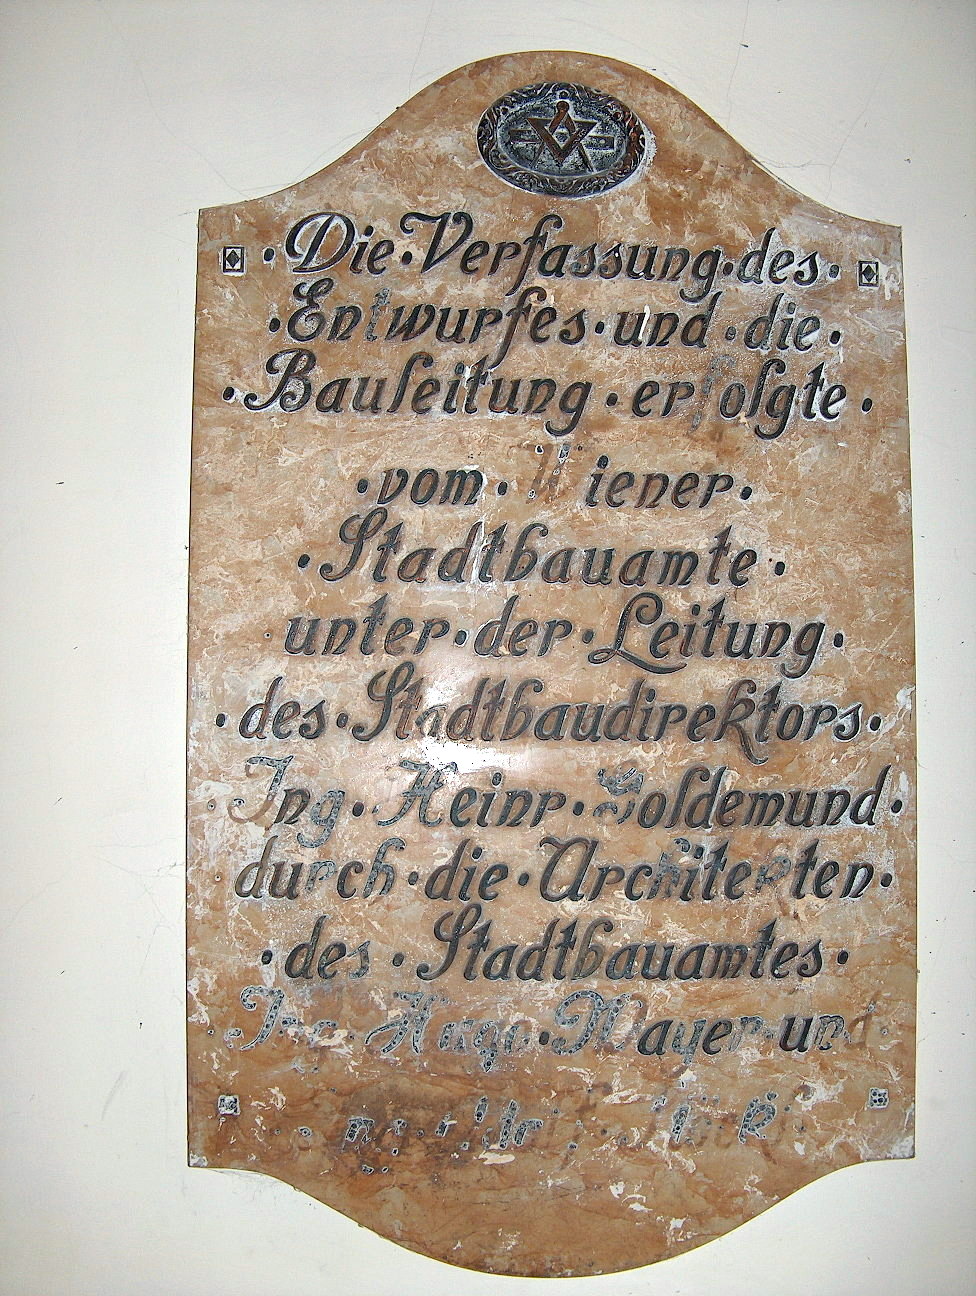 Die · Verfassung · des ·
· Entwurfes · und · die ·
· Bauleitung · erfolgte ·
· vom · Wiener ·
· Stadtbauamte ·
unter · der · Leitung ·
· des · Stadtbaudirektors ·
Ing · Heinr · Goldemund ·
durch · die · Architekten ·
· des · Stadtbauamtes ·
Ing · Hugo · Mayer · und